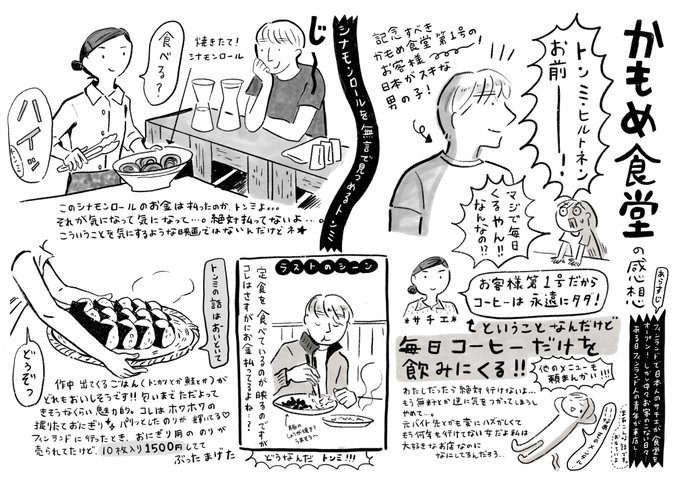 かもめ食堂
の感想
あらすじ
フィンランドで日本人のサチエが食堂を
オープン!しかし中々お客のこない日々…
ある日フィンランド人の青年が来店し…
トンミ・ヒルトネン
お前ーー!
記念すべき
かもめ食堂第1号の
お客様
日本がスキな
男の子!
マジで毎日
くるやん!!
なんなの!?
お客様第1号だから
コーヒーは永遠にタダ!
*サチエ*
ということなんだけど
毎日コーヒーだけを
飲みにくる!!
他のメニューも
頼まんかい!!!
わたしだったら絶対行けないよ…
もう無料とか逆に気をつかってしまうし
やめて…。
元バイト先とかも妙にハズかしくて
もう何年も行けてない女だよ私は
大好きなお店なのに
なにしてるんだろう…
じー
シナモンロールを無言で見つめるトンミ
食べる?
焼きたて!
シナモンロール
ハイッ
このシナモンロールのお金は払ったのか、トンミよ…
それが気になって気になって…。絶対払ってないよ…。
こういうことを気にするような映画ではないんだけどネ★
ラストのシーン
定食を食べているのが映るのですが
コレはさすがにお金払ってるよね?
どうなんだ トンミ!!!
トンミの話はおいといて
どうぞっ
作中出てくるごはん(トンカツとか鮭とか)が
どれもおいしそうです!!匂いまでただよって
きそうなくらい魅力的。コレはホクホクの
握りたておにぎり。パリッとしたのりが輝いてる♡
フィンランドに行ったとき、おにぎり用ののりが
売られてたけど、10枚入り1500円してて
ぶったまげた